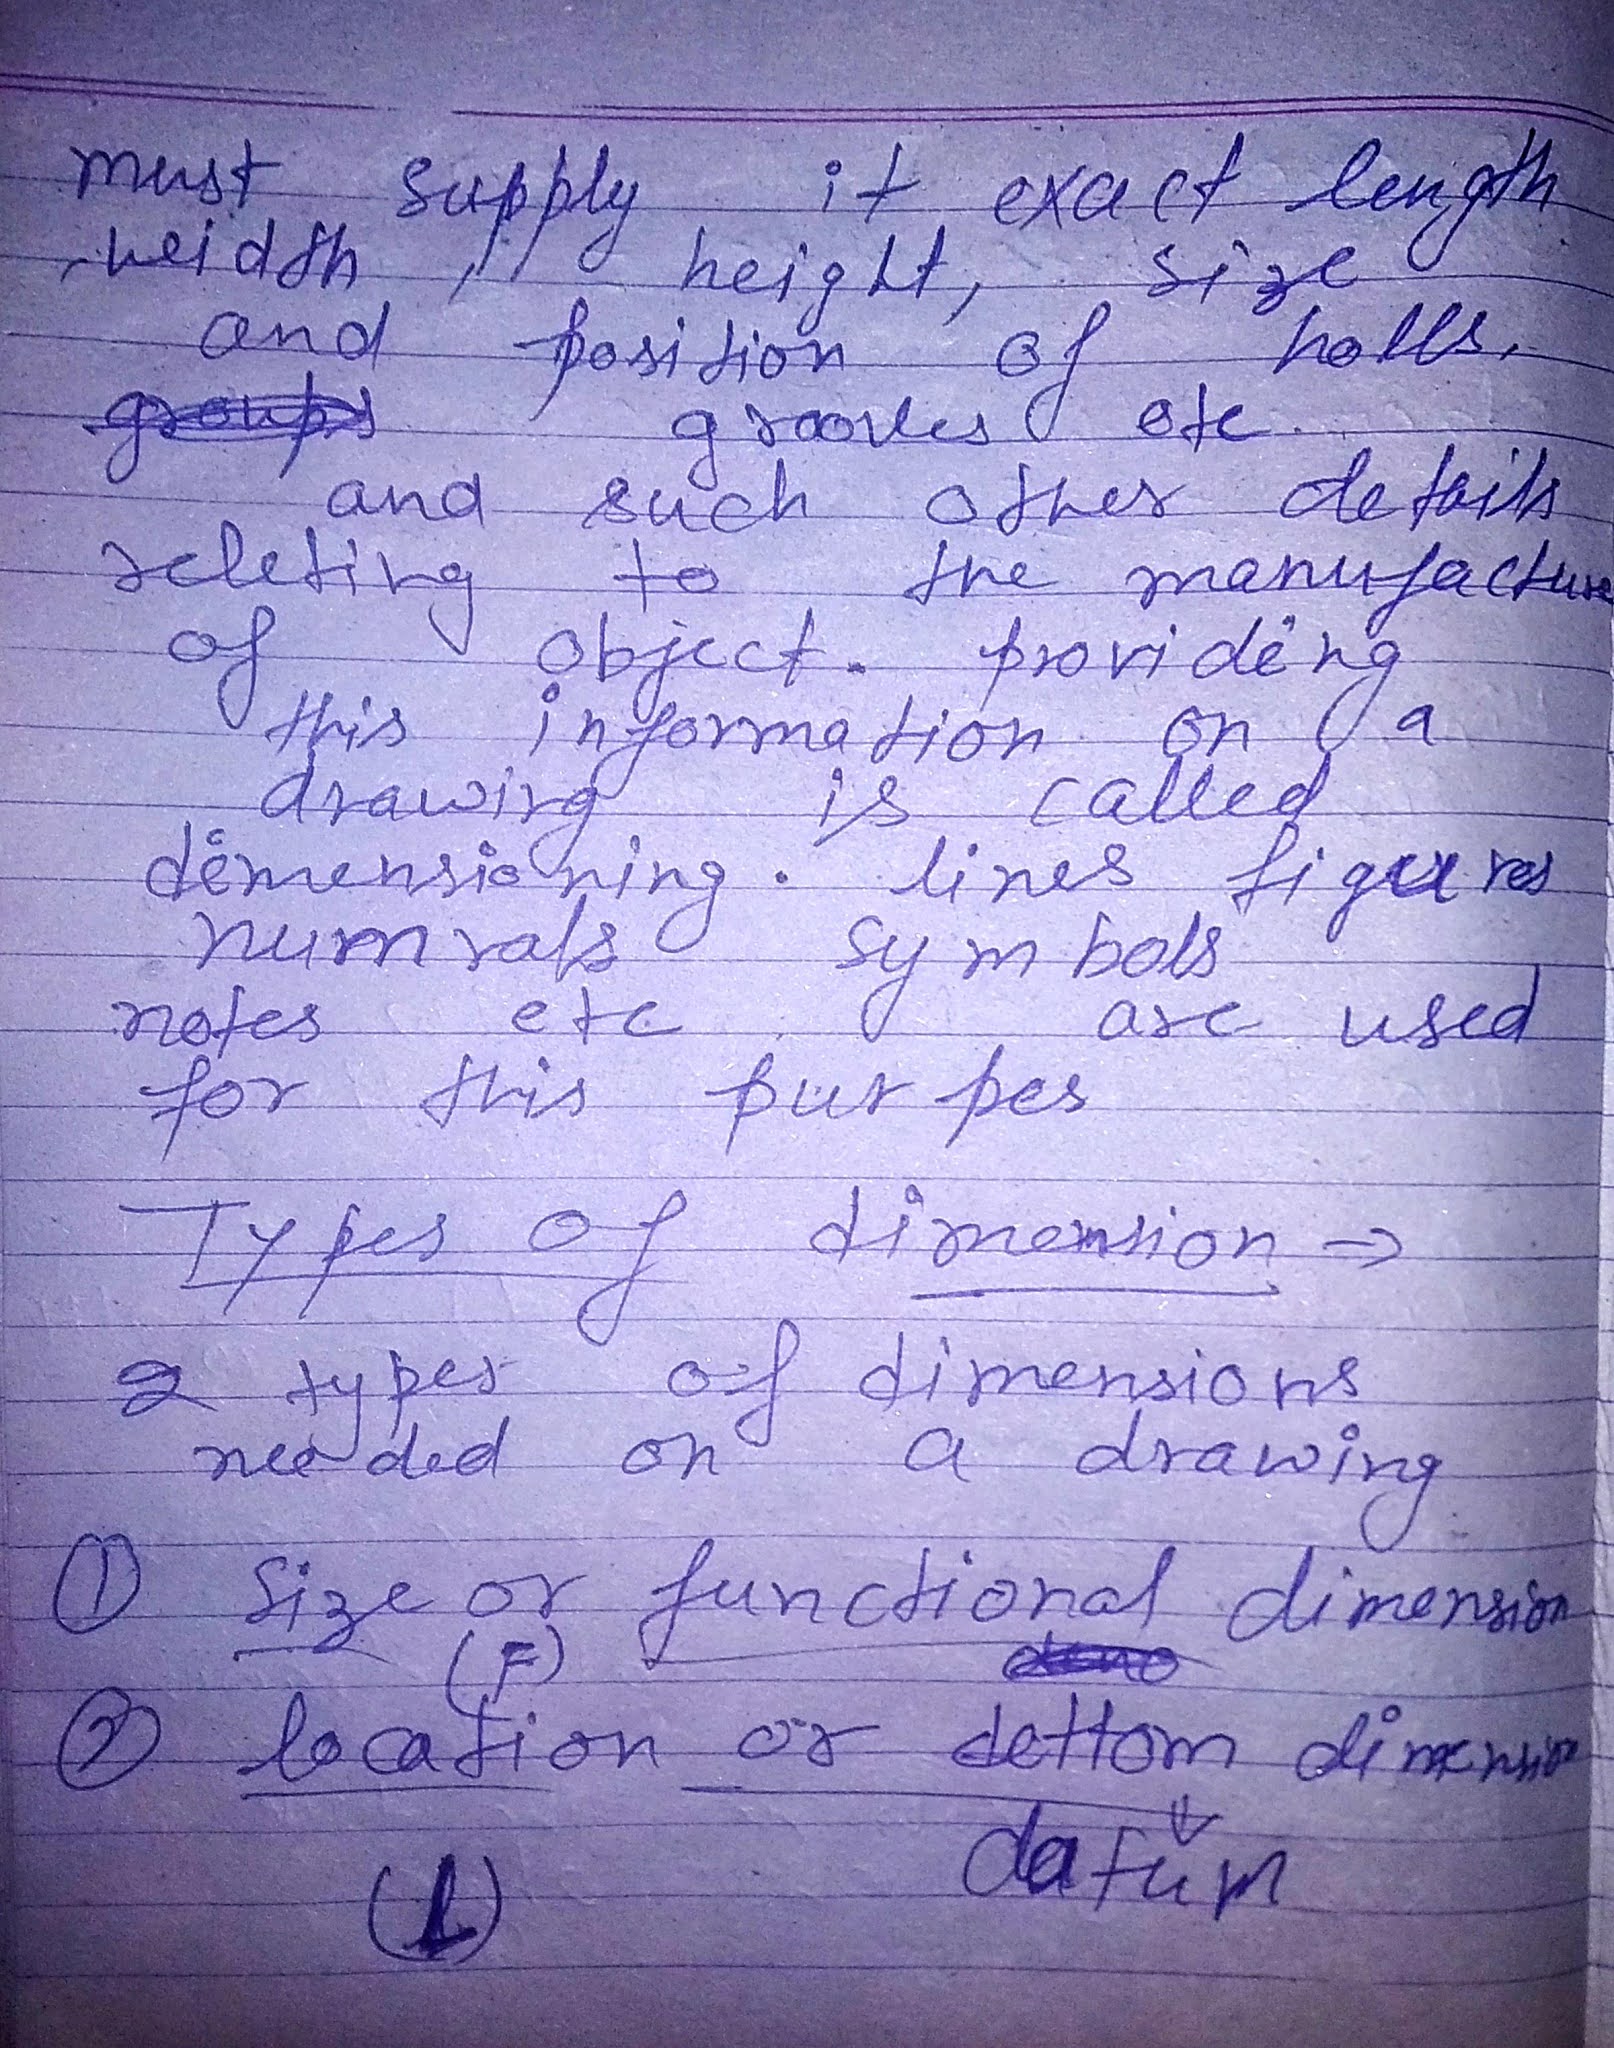 must supply it exact length
, weidth , height, size
and position of holls,
groups grooves etc
and such other details
releting to the manufacture
of object. providing
this information on a
drawing is called
dimensioning. lines figures
numrals symbols
notes etc are used
for this purpes
Types of dimension →
2 types of dimensions
needed on a drawing
① Size or functional dimension
(F)
② location or dettom dimension
datum
(L)